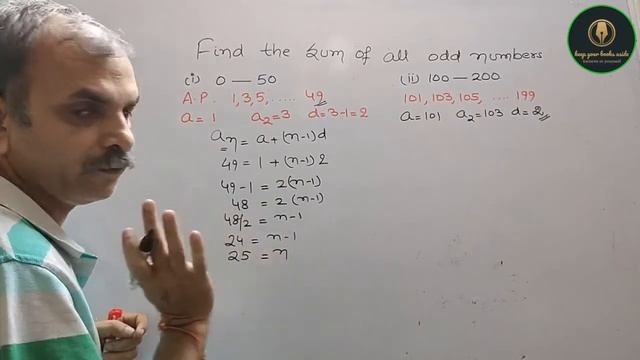 Find the sum of all odd numbers
(i) 0 — 50
A.P. 1, 3, 5, ..... 49
a = 1 a₂ = 3 d = 3-1 = 2
aₙ = a + (n-1)d
49 = 1 + (n-1)2
49-1 = 2(n-1)
48 = 2(n-1)
48/2 = n-1
24 = n-1
25 = n
(ii) 100 — 200
101, 103, 105, .... 199
a = 101 a₂ = 103 d = 2
keep your books aside